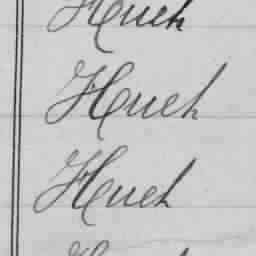 Hueh
Hueh
Hueh